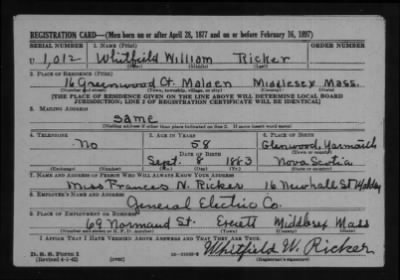 REGISTRATION CARD—(Men born on or after April 28, 1877 and on or before February 16, 1897)
SERIAL NUMBER 1. NAME (Print) ORDER NUMBER
U 1,012 Whitfield William Ricker
2. PLACE OF RESIDENCE (Print)
16 Greenwood Ct. Malden Middlesex Mass.
(Number and street) (Town, township, village, or city) (County) (State)
[THE PLACE OF RESIDENCE GIVEN ON THE LINE ABOVE WILL DETERMINE LOCAL BOARD
JURISDICTION; LINE 2 OF REGISTRATION CERTIFICATE WILL BE IDENTICAL]
3. MAILING ADDRESS
same
[Mailing address if other than place indicated on line 2. If same insert word same]
4. TELEPHONE 5. AGE IN YEARS 6. PLACE OF BIRTH
No 58 Glenwood, Yarmouth
DATE OF BIRTH (Town or county)
Sept. 8 1883 Nova Scotia
(Mo.) (Day) (Yr.) (State or country)
7. NAME AND ADDRESS OF PERSON WHO WILL ALWAYS KNOW YOUR ADDRESS
Miss Frances N. Ricker 16 Newhall St Malden
8. EMPLOYER'S NAME AND ADDRESS
General Electric Co.
9. PLACE OF EMPLOYMENT OR BUSINESS
69 Normand St. Everett Middlesex Mass
(Number and street or R. F. D. number) (Town) (County) (State)
I AFFIRM THAT I HAVE VERIFIED ABOVE ANSWERS AND THAT THEY ARE TRUE.
D. S. S. Form 1
(Revised 4-1-42) (over) Whitfield W. Ricker